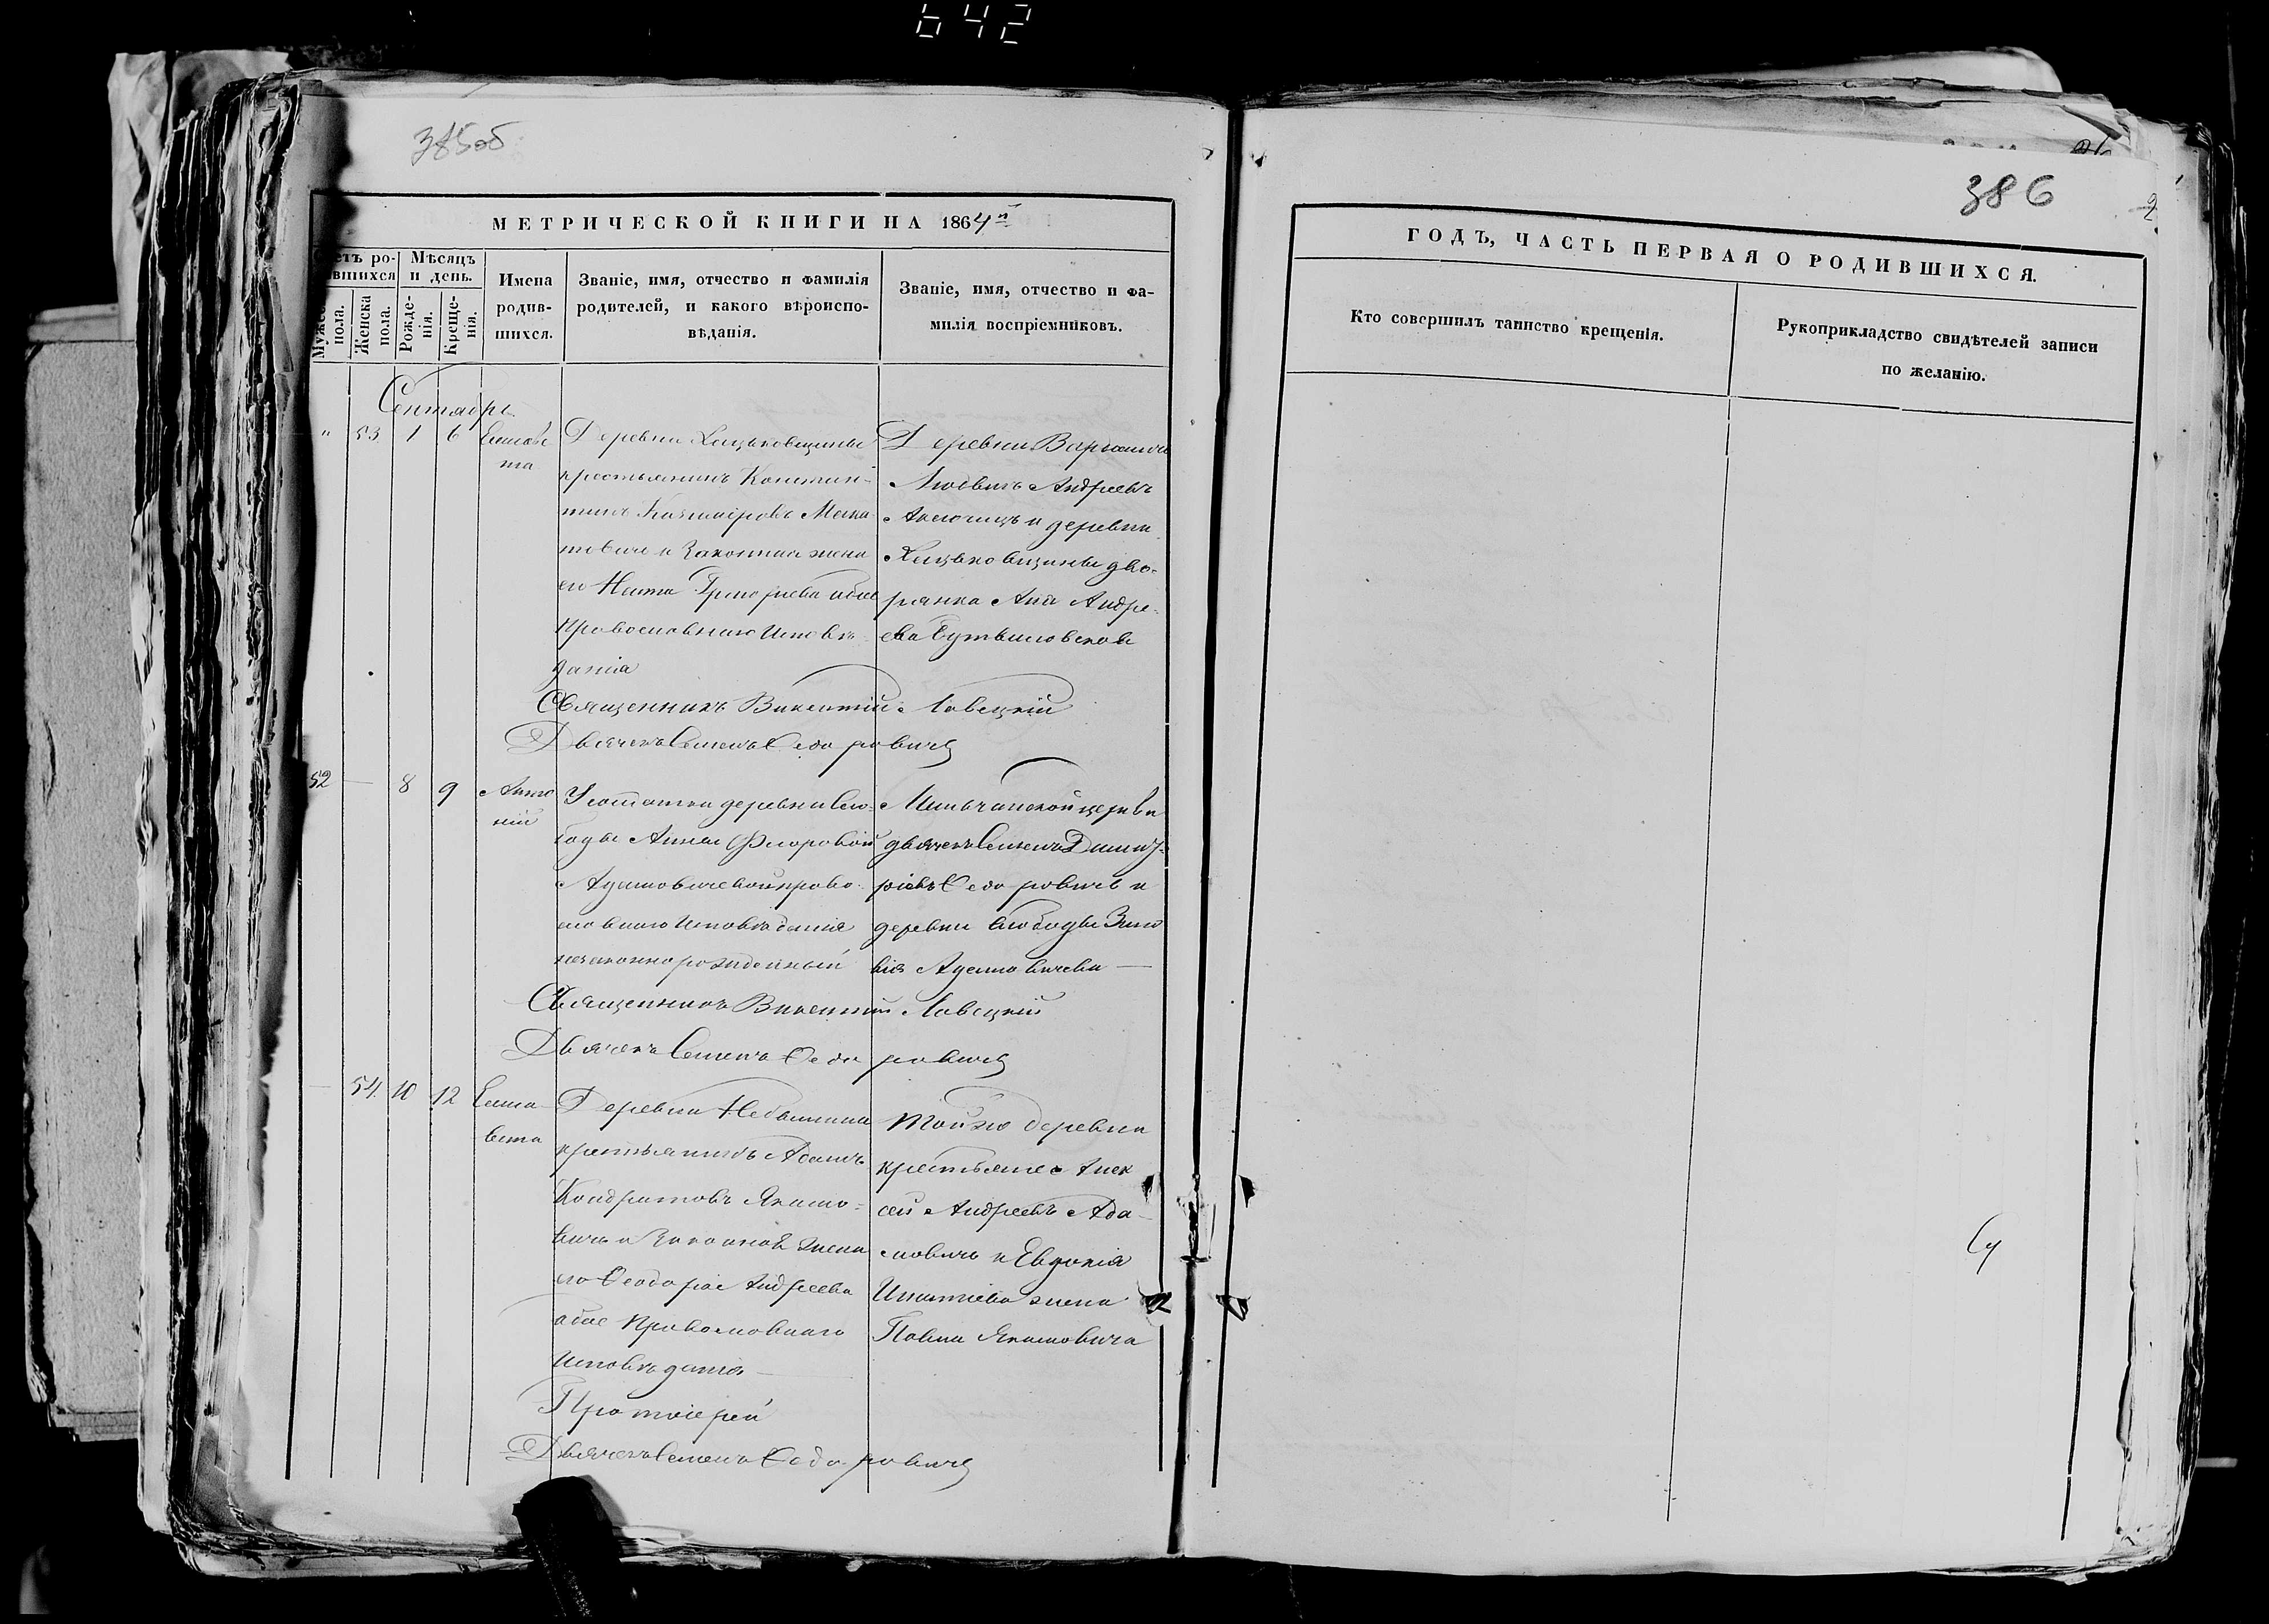 642
385об
МЕТРИЧЕСКОЙ КНИГИ НА 1864й
Счетъ родившихся
Мѣсяцъ и день.
Мужеска пола.
Женска пола.
Рожденія.
Крещенія.
Имена родившихся.
Званіе, имя, отчество и фамилія
родителей, и какого вѣроиспо-
вѣданія.
Званіе, имя, отчество и фа-
милія воспріемниковъ.
Сентябрь
" 53 1 6 Елисаве
та
Деревни
крестьянинъ Констан-
тинъ Казиміровъ
и законная жена
его Григорьева обое
Православнаго Исповѣ-
данія
Деревни
Людвигъ Андреевъ
и деревни
дво-
рянка Андре-
ева
Священникъ Викентій Ловецкій
Дьячекъ Семенъ Ѳедоровичъ
52 — 8 9 Анто
ній
деревни Сло-
боды Анны Флоровой
Адамовичевой право-
славнаго Исповѣданія
незаконнорожденный
Мильчанской церкви
дьячекъ Семенъ Димит-
ріевъ Ѳедоровичъ и
деревни Слободы Зино
вія Адамовичева —
Священникъ Викентій Ловецкій
Дьячекъ Семенъ Ѳедоровичъ
— 54 10 12 Елиса
вета
Деревни
крестьянинъ Адамъ
Кондратовъ Якимо-
вичъ и Законная жена
его Ѳеодора Андреева
обое Православнаго
Исповѣданія —
Той же деревни
крестьяне Алек
сей Андреевъ Ада-
мовичъ и Евдокія
Игнатіева жена
Павла Якимовича
Протоіерей
Дьячекъ Семенъ Ѳедоровичъ
386
ГОДЪ, ЧАСТЬ ПЕРВАЯ О РОДИВШИХСЯ.
Кто совершилъ таинство крещенія.
Рукоприкладство свидѣтелей записи
по желанію.